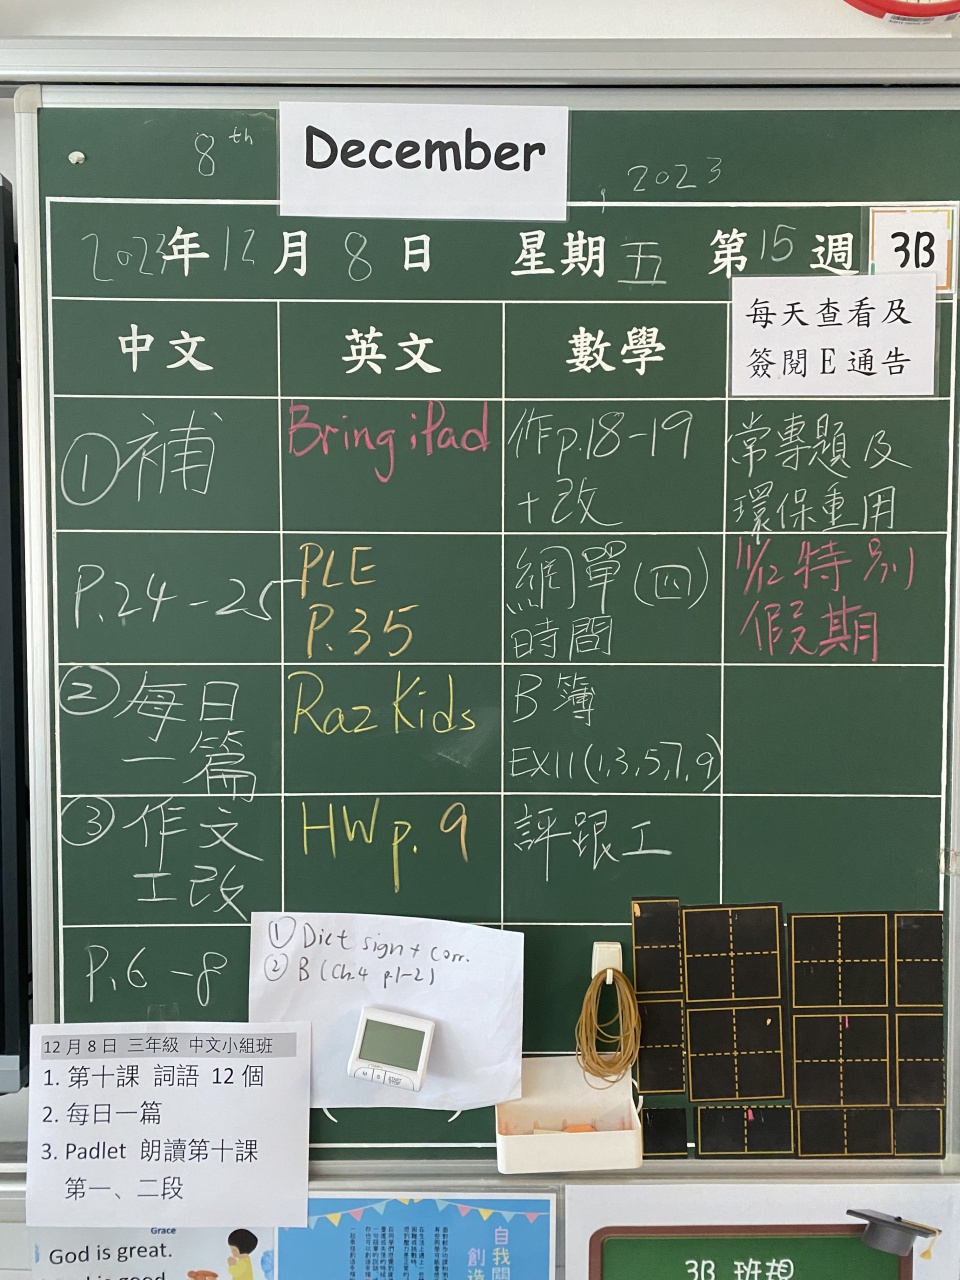 8th December, 2023
2023年12月8日 星期五 第15週 3B
每天查看及
簽閱E通告
中文 英文 數學
①補
P.24-25
②每日
一篇
③作文
工改
P.6-8
Bring iPad
PLE
P.35
Raz Kids
HW p.9
作p.18-19
+改
網單(四)
時間
B簿
EX11(1,3,5,7,9)
評跟工
常專題及
環保重用
11/12特別
假期
① Dict sign + corr.
② B (Ch.4 p.1-2)
12月8日 三年級 中文小組班
1. 第十課 詞語 12個
2. 每日一篇
3. Padlet 朗讀第十課
第一、二段
Grace
God is great.
3B 班規